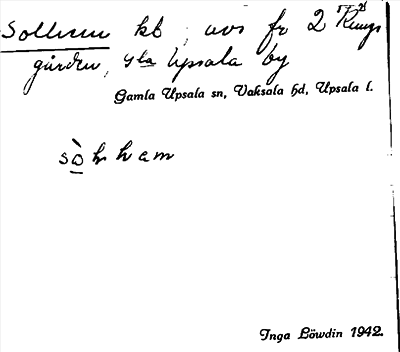 Sollum kb, avs fr 2 Kungs
gården, Gla Upsala by
Gamla Upsala sn, Vaksala hd, Upsala l.
sò̱hham
Inga Löwdin 1942.